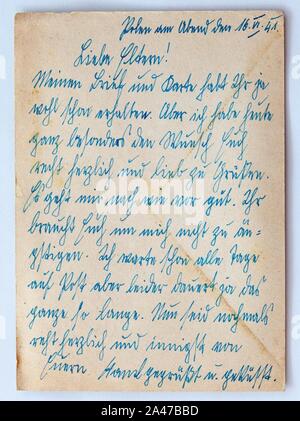 Polen am Abend den 16.VI.41.
Liebe Eltern!
Meinen Brief und Karte habt Ihr ja
wohl schon erhalten. Aber ich habe heute
ganz besonders den Wunsch Euch
recht herzlich und lieb zu Grüßen.
Es geht mir nach wie vor gut. Ihr
braucht Euch um mich nicht zu än-
gstigen. Ich warte schon alle Tage
auf Post aber leider dauert ja das
ganze so lange. Nun seid nochmals
recht herzlich und innigst von
Euern gegrüßt u. geküsst.
alamy
Image ID: 2A47BBD
www.alamy.com